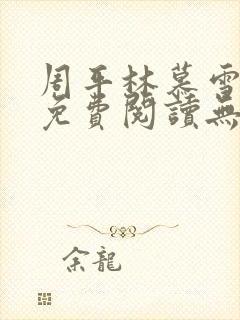 周平林慕雪
免費閱讀無
余龍